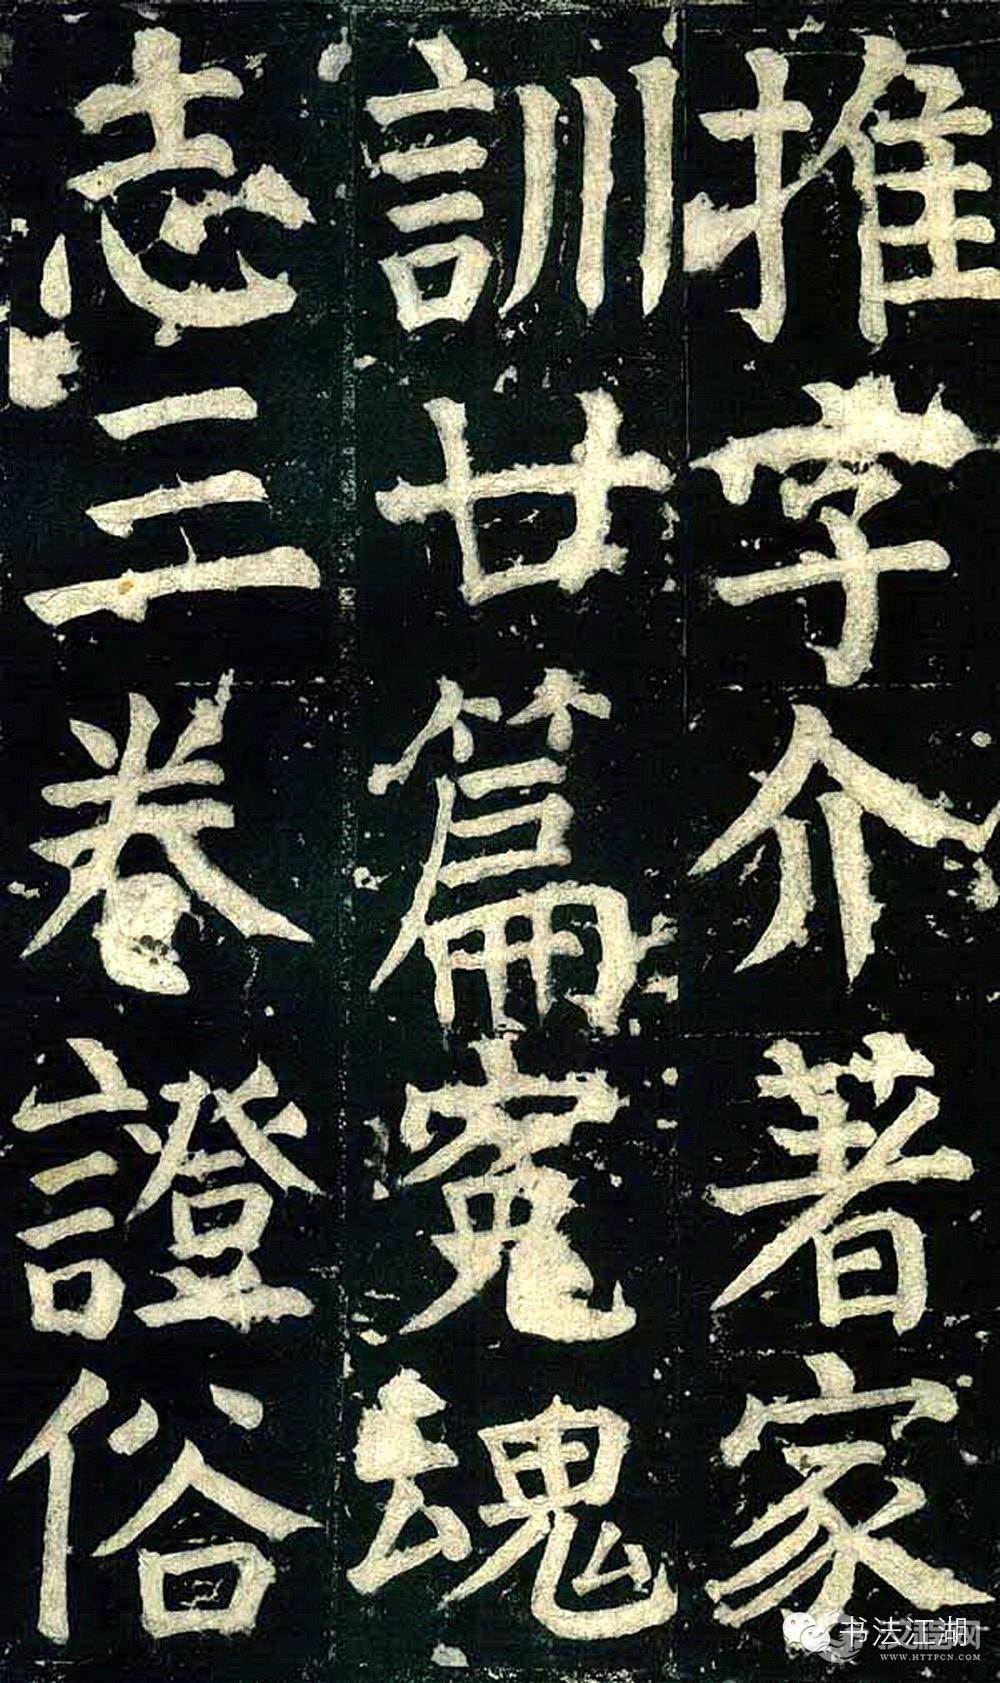 推字介著家
訓廿篇冤魂
志三卷證俗
书法江湖
汉程网
WWW.HTTPCN.COM